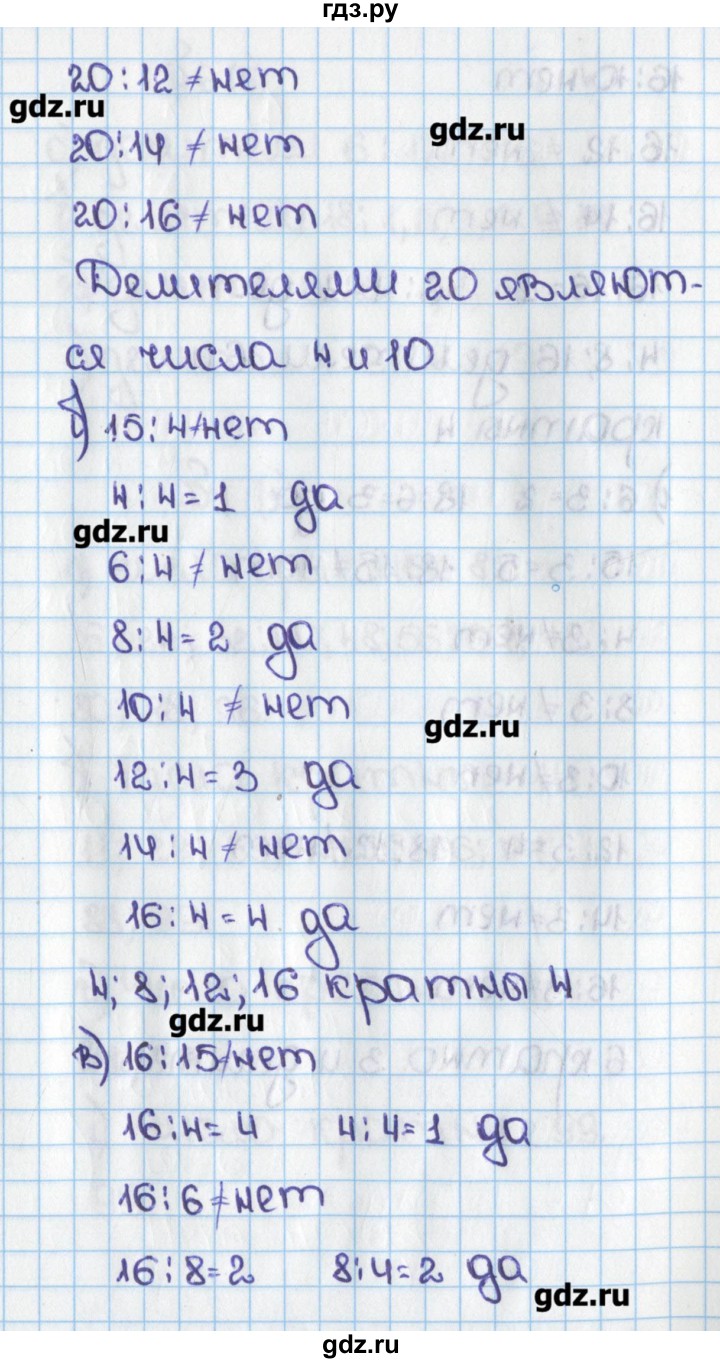 гдз.ру
20:12 ≠ нет
gdz.ru
gdz.ru
20:14 ≠ нет
20:16 ≠ нет
Делителями 20 являют-
ся числа 4 и 10
б) 15:4 ≠ нет
4:4=1 да
gdz.ru
6:4 ≠ нет
8:4=2 да
10:4 ≠ нет
gdz.ru
12:4=3 да
14:4 ≠ нет
16:4=4 да
4; 8; 12; 16 кратны 4
gdz.ru
в) 16:15 ≠ нет
16:4=4 4:4=1 да
16:6 ≠ нет
16:8=2 8:4=2 да
gdz.ru
gdz.ru